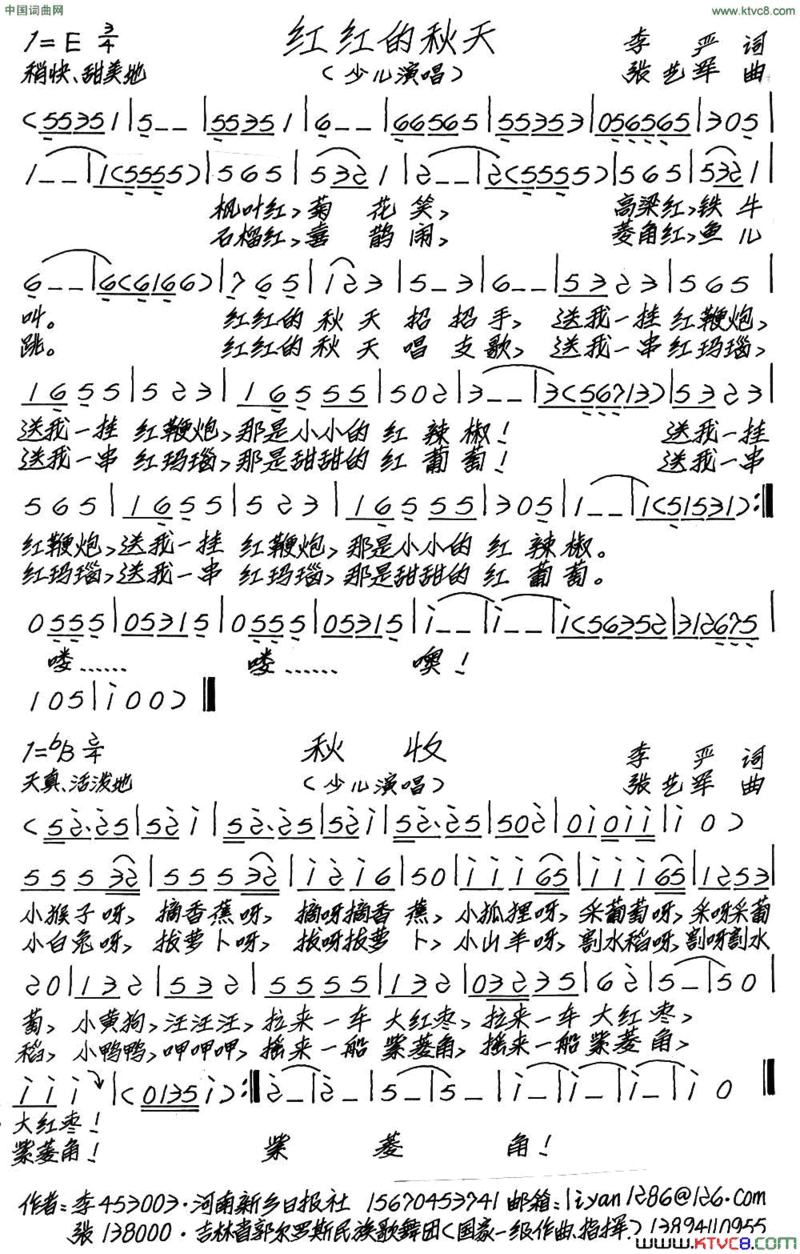 中国词曲网
www.ktvc8.com
1=E 3/4 红红的秋天 李严 词
稍快、甜美地 (少儿演唱) 张艺军 曲
(55351|5--|55351|6--|66565|55353|056565|305|
1--|1(5555)|565|5321|2--|2(5555)|565|5321|
枫叶红,菊花笑, 高粱红,铁牛
石榴红,喜鹊闹, 菱角红,鱼儿
6--|6(6166)|765|123|5-3|6--|5323|565|
叫。 红红的秋天招招手,送我一挂红鞭炮,
跳。 红红的秋天唱支歌,送我一串红玛瑙,
1655|523|16555|502|3--|3(56713)|5323|
送我一挂红鞭炮,那是小小的红辣椒! 送我一挂
送我一串红玛瑙,那是甜甜的红葡萄! 送我一串
565|1655|523|16555|305|1--|1(51531):‖
红鞭炮,送我一挂红鞭炮,那是小小的红辣椒。
红玛瑙,送我一串红玛瑙,那是甜甜的红葡萄。
0555|05315|0555|05315|i--|i--|i(56352|312675|
喽…… 喽…… 噢!
105|i00)‖
1=bB 2/4 秋收 李严 词
天真、活泼地 (少儿演唱) 张艺军 曲
(52·25|52i|52·25|52i|52·25|502|0i0ii|i0)
55532|55532|i2i6|50|iii65|iii65|1253|
小猴子呀,摘香蕉呀,摘呀摘香蕉,小狐狸呀,采葡萄呀,采呀采葡
小白兔呀,拔萝卜呀,拔呀拔萝卜,小山羊呀,割水稻呀,割呀割水
20|132|532|5555|132|03235|62|5-|50|
萄,小黄狗,汪汪汪,拉来一车大红枣,拉来一车大红枣,
稻,小鸭鸭,呷呷呷,摇来一船紫菱角,摇来一船紫菱角,
iii|(0135i):‖2-|2-|5-|5-|i-|i-|i-|i0‖
大红枣!
紫菱角! 紫菱角!
作者:李453003·河南新乡日报社 15670453741 邮箱:liyan1286@126.com
张138000·吉林省郭尔罗斯民族歌舞团(国家一级作曲、指挥)13894110955
www.KTVC8.com